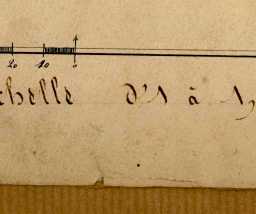 20 10 0
chelle d'1 à 1